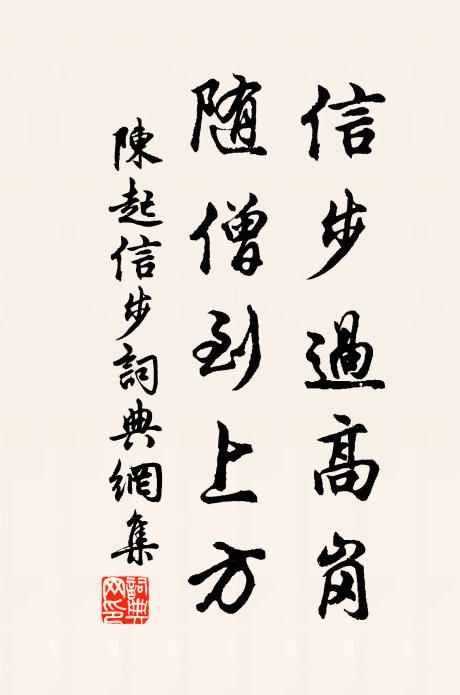 信步過高崗
随僧到上方
陳起信步詞典網集
詞典網印